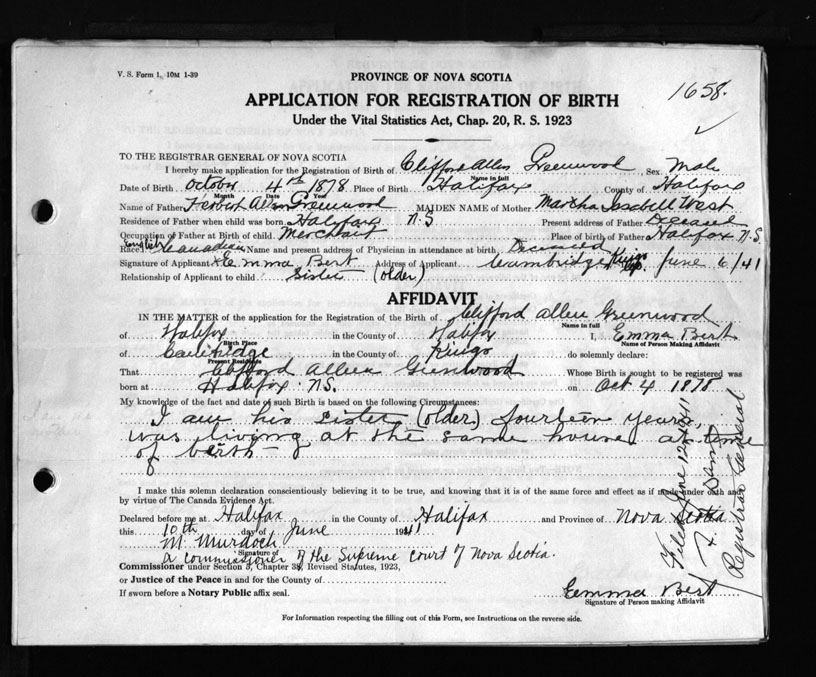 V. S. Form 1. 10M 1-39
PROVINCE OF NOVA SCOTIA
1658.
APPLICATION FOR REGISTRATION OF BIRTH
Under the Vital Statistics Act, Chap. 20, R. S. 1923
TO THE REGISTRAR GENERAL OF NOVA SCOTIA
I hereby make application for the Registration of Birth of Clifford Allen Greenwood Sex Male
Name in full
Date of Birth October 4th 1878 Place of Birth Halifax County of Halifax
Month Date Year
Name of Father Allen Greenwood MAIDEN NAME of Mother Martha Isabell West
Residence of Father when child was born Halifax N S Present address of Father Deceased
Occupation of Father at Birth of child Merchant Place of birth of Father Halifax N.S.
Race English Canadian Name and present address of Physician in attendance at birth Deceased
Signature of Applicant X Emma Bert Address of Applicant Cambridge Kings Co. June 6/41
Relationship of Applicant to child Sister (older)
AFFIDAVIT
IN THE MATTER of the application for the Registration of the Birth of Clifford Allen Greenwood
Name in full
of Halifax in the County of Halifax I, Emma Bert
Birth Place Name of Person Making Affidavit
of in the County of Kings do solemnly declare:
Present Residence
That Clifford Allen Greenwood Whose Birth is sought to be registered was
born at Halifax N.S. on Oct 4 1878
My knowledge of the fact and date of such Birth is based on the following Circumstances:
I am his sister (older) fourteen years,
was living at the same house at time
of birth
I make this solemn declaration conscientiously believing it to be true, and knowing that it is of the same force and effect as if made under oath and
by virtue of The Canada Evidence Act.
Declared before me at Halifax in the County of Halifax and Province of Nova Scotia
this 10th day of June 1941
M. Murdoch
Signature of
a commissioner of the Supreme Court of Nova Scotia.
Commissioner under Section 3, Chapter 38, Revised Statutes, 1923,
or Justice of the Peace in and for the County of
If sworn before a Notary Public affix seal.
Emma Bert
Signature of Person making Affidavit
For Information respecting the filling out of this Form, see Instructions on the reverse side.
Filed June 12 1941
Registrar General